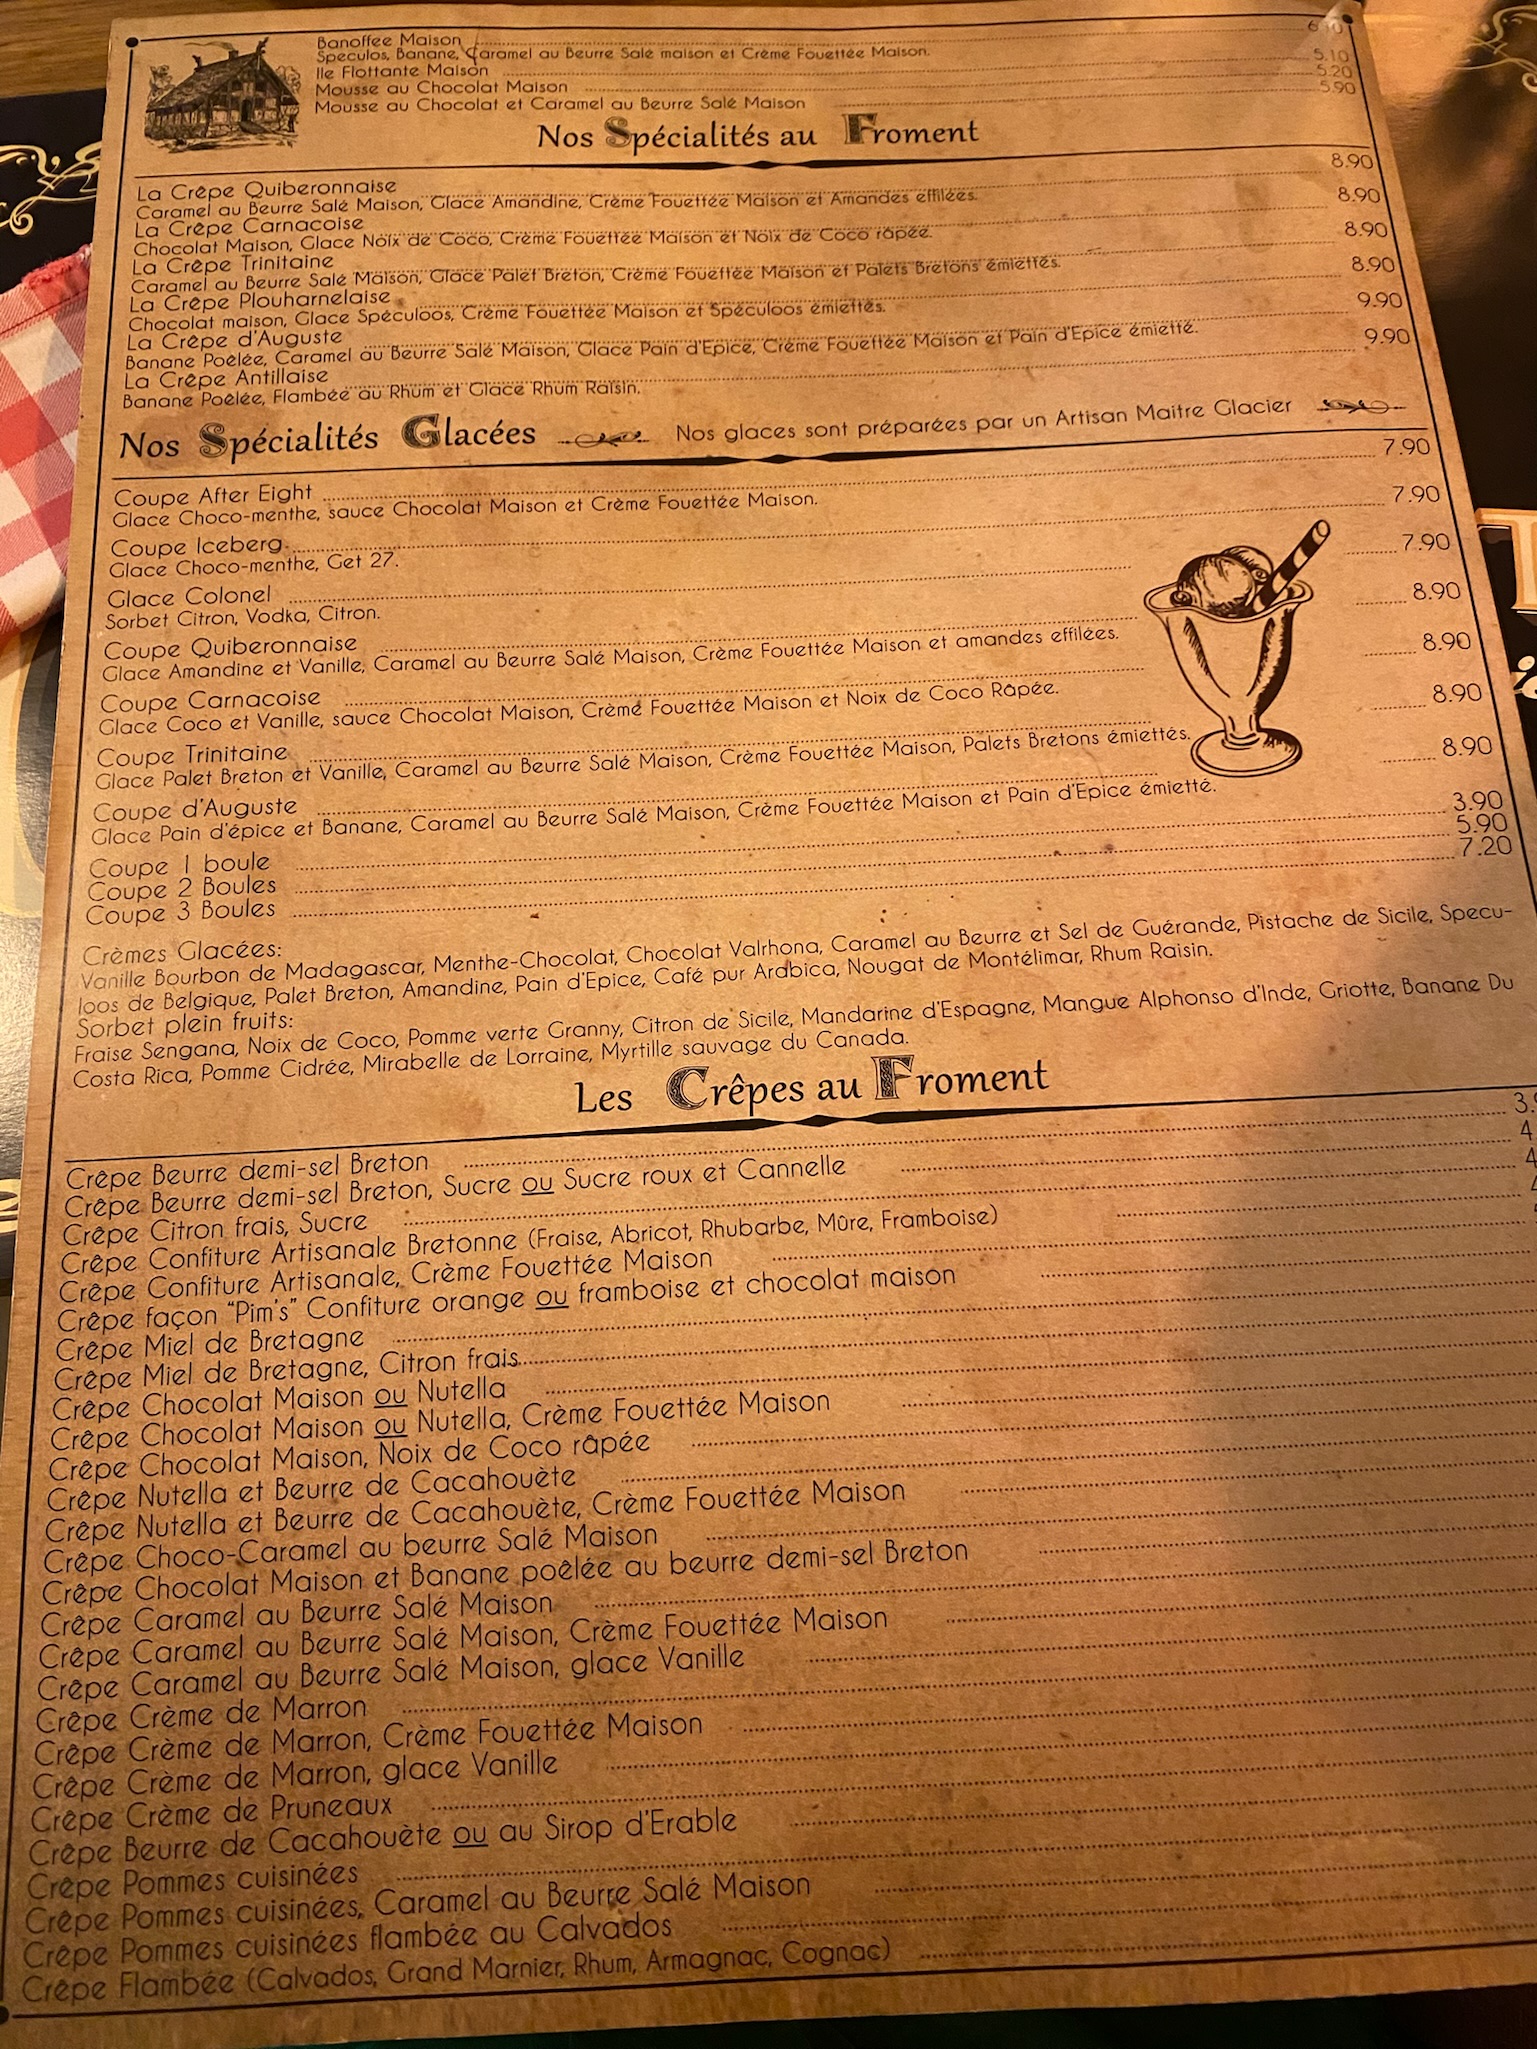 Banoffee Maison
Speculos, Banane, Caramel au Beurre Salé maison et Crème Fouettée Maison.
Ile Flottante Maison 5.10
Mousse au Chocolat Maison 5.20
Mousse au Chocolat et Caramel au Beurre Salé Maison 5.90
Nos Spécialités au Froment
La Crêpe Quiberonnaise 8.90
Caramel au Beurre Salé Maison, Glace Amandine, Crème Fouettée Maison et Amandes effilées.
La Crêpe Carnacoise 8.90
Chocolat Maison, Glace Noix de Coco, Crème Fouettée Maison et Noix de Coco râpée.
La Crêpe Trinitaine 8.90
Caramel au Beurre Salé Maison, Glace Palet Breton, Crème Fouettée Maison et Palets Bretons émiettés.
La Crêpe Plouharnelaise 8.90
Chocolat maison, Glace Spéculoos, Crème Fouettée Maison et Spéculoos émiettés.
La Crêpe d'Auguste 9.90
Banane Poêlée, Caramel au Beurre Salé Maison, Glace Pain d'Epice, Crème Fouettée Maison et Pain d'Epice émietté.
La Crêpe Antillaise 9.90
Banane Poêlée, Flambée au Rhum et Glace Rhum Raisin.
Nos Spécialités Glacées Nos glaces sont préparées par un Artisan Maitre Glacier
Coupe After Eight 7.90
Glace Choco-menthe, sauce Chocolat Maison et Crème Fouettée Maison.
Coupe Iceberg 7.90
Glace Choco-menthe, Get 27.
Glace Colonel 7.90
Sorbet Citron, Vodka, Citron.
Coupe Quiberonnaise 8.90
Glace Amandine et Vanille, Caramel au Beurre Salé Maison, Crème Fouettée Maison et amandes effilées.
Coupe Carnacoise 8.90
Glace Coco et Vanille, sauce Chocolat Maison, Crème Fouettée Maison et Noix de Coco Râpée.
Coupe Trinitaine 8.90
Glace Palet Breton et Vanille, Caramel au Beurre Salé Maison, Crème Fouettée Maison, Palets Bretons émiettés.
Coupe d'Auguste 8.90
Glace Pain d'épice et Banane, Caramel au Beurre Salé Maison, Crème Fouettée Maison et Pain d'Epice émietté.
Coupe 1 boule 3.90
Coupe 2 Boules 5.90
Coupe 3 Boules 7.20
Crèmes Glacées:
Vanille Bourbon de Madagascar, Menthe-Chocolat, Chocolat Valrhona, Caramel au Beurre et Sel de Guérande, Pistache de Sicile, Specu-
loos de Belgique, Palet Breton, Amandine, Pain d'Epice, Café pur Arabica, Nougat de Montélimar, Rhum Raisin.
Sorbet plein fruits:
Fraise Sengana, Noix de Coco, Pomme verte Granny, Citron de Sicile, Mandarine d'Espagne, Mangue Alphonso d'Inde, Griotte, Banane Du
Costa Rica, Pomme Cidrée, Mirabelle de Lorraine, Myrtille sauvage du Canada.
Les Crêpes au Froment
Crêpe Beurre demi-sel Breton
Crêpe Beurre demi-sel Breton, Sucre ou Sucre roux et Cannelle
Crêpe Citron frais, Sucre
Crêpe Confiture Artisanale Bretonne (Fraise, Abricot, Rhubarbe, Mûre, Framboise)
Crêpe Confiture Artisanale, Crème Fouettée Maison
Crêpe façon "Pim's" Confiture orange ou framboise et chocolat maison
Crêpe Miel de Bretagne
Crêpe Miel de Bretagne, Citron frais
Crêpe Chocolat Maison ou Nutella
Crêpe Chocolat Maison ou Nutella, Crème Fouettée Maison
Crêpe Chocolat Maison, Noix de Coco râpée
Crêpe Nutella et Beurre de Cacahouète
Crêpe Nutella et Beurre de Cacahouète, Crème Fouettée Maison
Crêpe Choco-Caramel au beurre Salé Maison
Crêpe Chocolat Maison et Banane poêlée au beurre demi-sel Breton
Crêpe Caramel au Beurre Salé Maison
Crêpe Caramel au Beurre Salé Maison, Crème Fouettée Maison
Crêpe Caramel au Beurre Salé Maison, glace Vanille
Crêpe Crème de Marron
Crêpe Crème de Marron, Crème Fouettée Maison
Crêpe Crème de Marron, glace Vanille
Crêpe Crème de Pruneaux
Crêpe Beurre de Cacahouète ou au Sirop d'Erable
Crêpe Pommes cuisinées
Crêpe Pommes cuisinées, Caramel au Beurre Salé Maison
Crêpe Pommes cuisinées flambée au Calvados
Crêpe Flambée (Calvados, Grand Marnier, Rhum, Armagnac, Cognac)